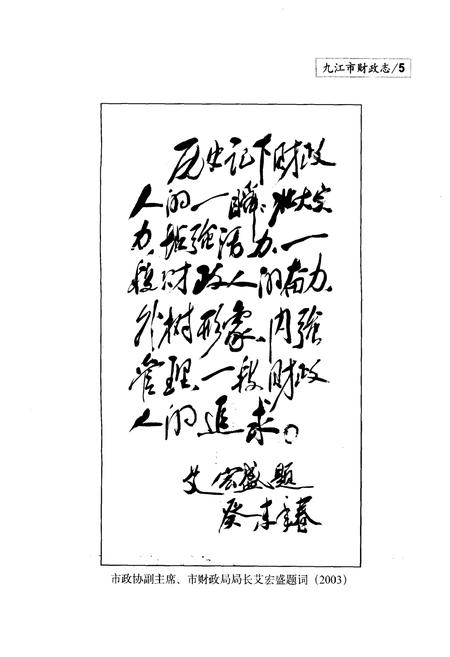 九江市财政志/5
历史记下财政
人的一瞬:壮大实
力、增强活力、一
段财政人的奋力、
外树形象、内强
管理、一段财政
人的追求。
艾宏盛题
癸未年春
市政协副主席、市财政局局长艾宏盛题词(2003)